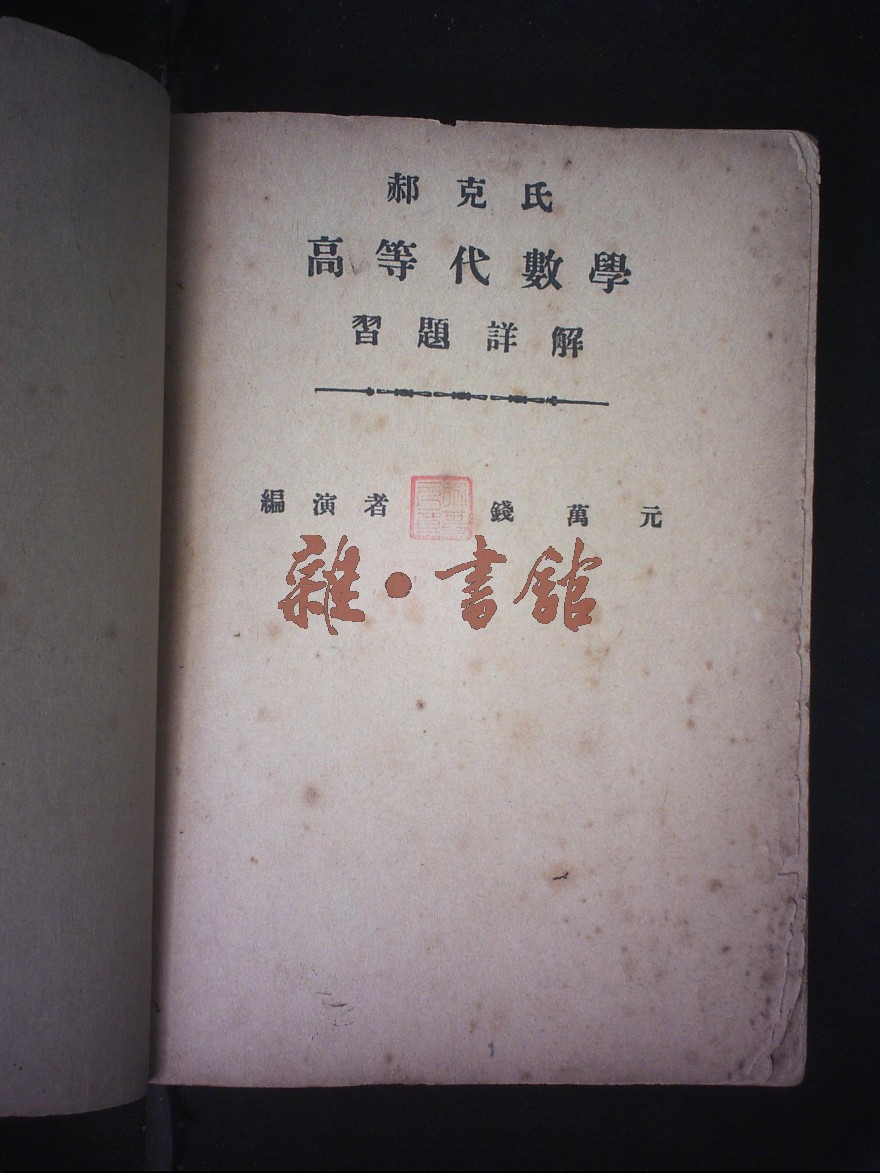 郝克氏
高等代數學
習題詳解
編演者 錢萬元
雜·書舘